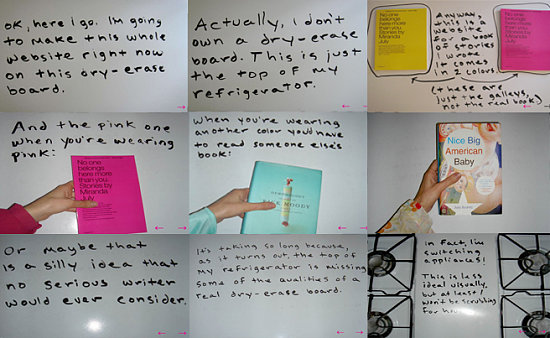 OK, here i go. I'm going
to make this whole
website right now
on this dry-erase
board.
Actually, i don't
own a dry-erase
board. This is just
the top of my
refrigerator.
No one
belongs
here more
than you.
Stories by
Miranda
July
Anyway,
this is a
website
for a
book of
stories
i wrote.
it comes
in 2 colors
(these are
just the galleys,
not the real book)
No one
belongs
here more
than you.
Stories by
Miranda
July
And the pink one
when you're wearing
pink:
No one
belongs
here more
than you.
Stories by
Miranda
July
When you're wearing
another color you'd have
to read someone else's
book:
MOODY
Nice Big
American
Baby
Or maybe that
is a silly idea that
no serious writer
would ever consider.
It's taking so long because,
as it turns out, the top of
my refrigerator is missing
some of the qualities of a
real dry-erase board.
in fact, i'm
switching
appliances!
This is less
ideal visually,
but at least i
won't be scrubbing
for